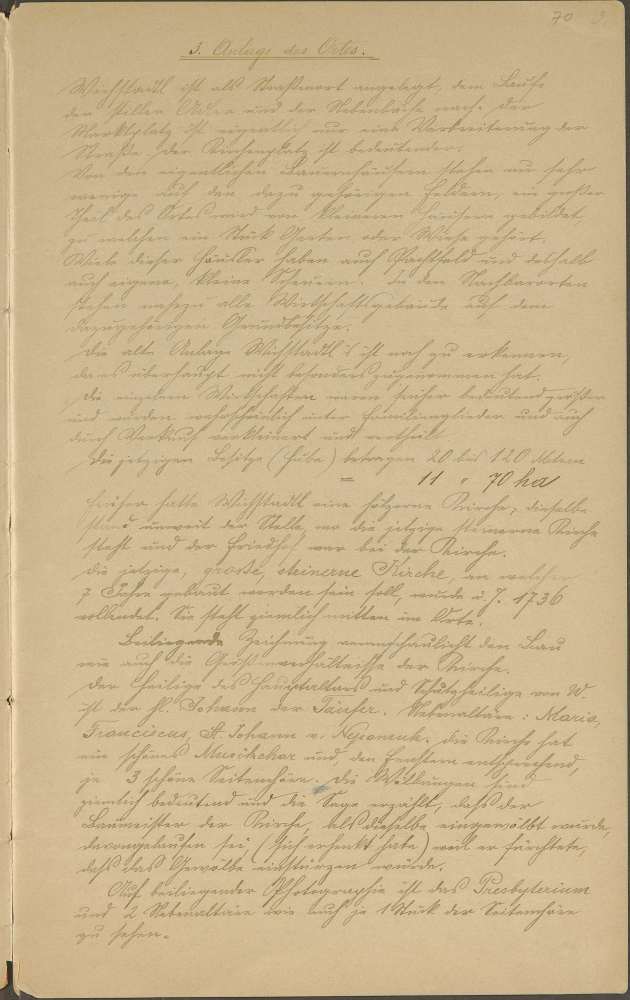 70 3.
3. Anlage des Ortes.
Wichstadtl ist als Straßenort angelegt, dem Laufe
der stillen Adler und der Nebenbäche nach. Der
Marktplatz ist eigentlich nur eine Verbreiterung der
Straße, der Kirchenplatz ist bedeutender.
Von den eigentlichen Bauernhäusern stehen nur sehr
wenige auf den dazu gehörigen Feldern, ein großer
Theil des Ortes wird von kleineren Häusern gebildet,
zu welchen ein Stück Garten oder Wiese gehört.
Viele dieser Häusler haben auch Pachtfeld und deshalb
auch eigene, kleine Scheuern. In den Nachbarorten
stehen nahezu alle Wirthschaftsgebäude auf dem
dazugehörigen Grundbesitze.
Die alte Anlage Wichstadtls ist noch zu erkennen,
da es überhaupt nicht besonders zugenommen hat.
Die einzelnen Wirthschaften waren früher bedeutend größer
und wurden wahrscheinlich unter Familienglieder und auch
durch Verkauf verkleinert und vertheilt
Die jetzigen Besitze (Hube) betragen 20 bis 120 Metern
= 11 " 70 ha
Früher hatte Wichstadtl eine hölzerne Kirche; dieselbe
stand unweit der Stelle, wo die jetzige steinerne Kirche
steht und der Friedhof war bei der Kirche.
Die jetzige, große, steinerne Kirche, an welcher
7 Jahre gebaut worden sein soll, wurde i. J. 1736
vollendet. Sie steht ziemlich mitten im Orte.
Beiliegende Zeichnung veranschaulicht den Bau
wie auch die Größenverhältnisse der Kirche.
Der Heilige des Hauptaltars und Schutzheilige von W.
ist der hl. Johann der Täufer. Nebenaltäre: Maria,
Franciscus, St. Johann v. Nepomuk. Die Kirche hat
ein schönes Musikchor und, den Fenstern entsprechend,
je 3 schöne Seitenchöre. Die Wölbungen sind
ziemlich bedeutend und die Sage erzählt, daß der
Baumeister der Kirche, als dieselbe eingewölbt wurde,
davongelaufen sei, (sich erhenkt habe) weil er fürchtete,
daß das Gewölbe einstürzen würde.
Auf beiliegender Photographie ist das Presbyterium
und 2 Nebenaltäre wie auch je 1 Stück der Seitenchöre
zu sehen.